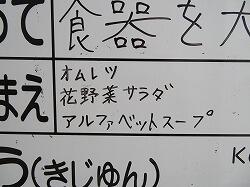 おて 食器を大
まえ オムレツ
花野菜サラダ
アルファベットスープ
う(きじゅん) K